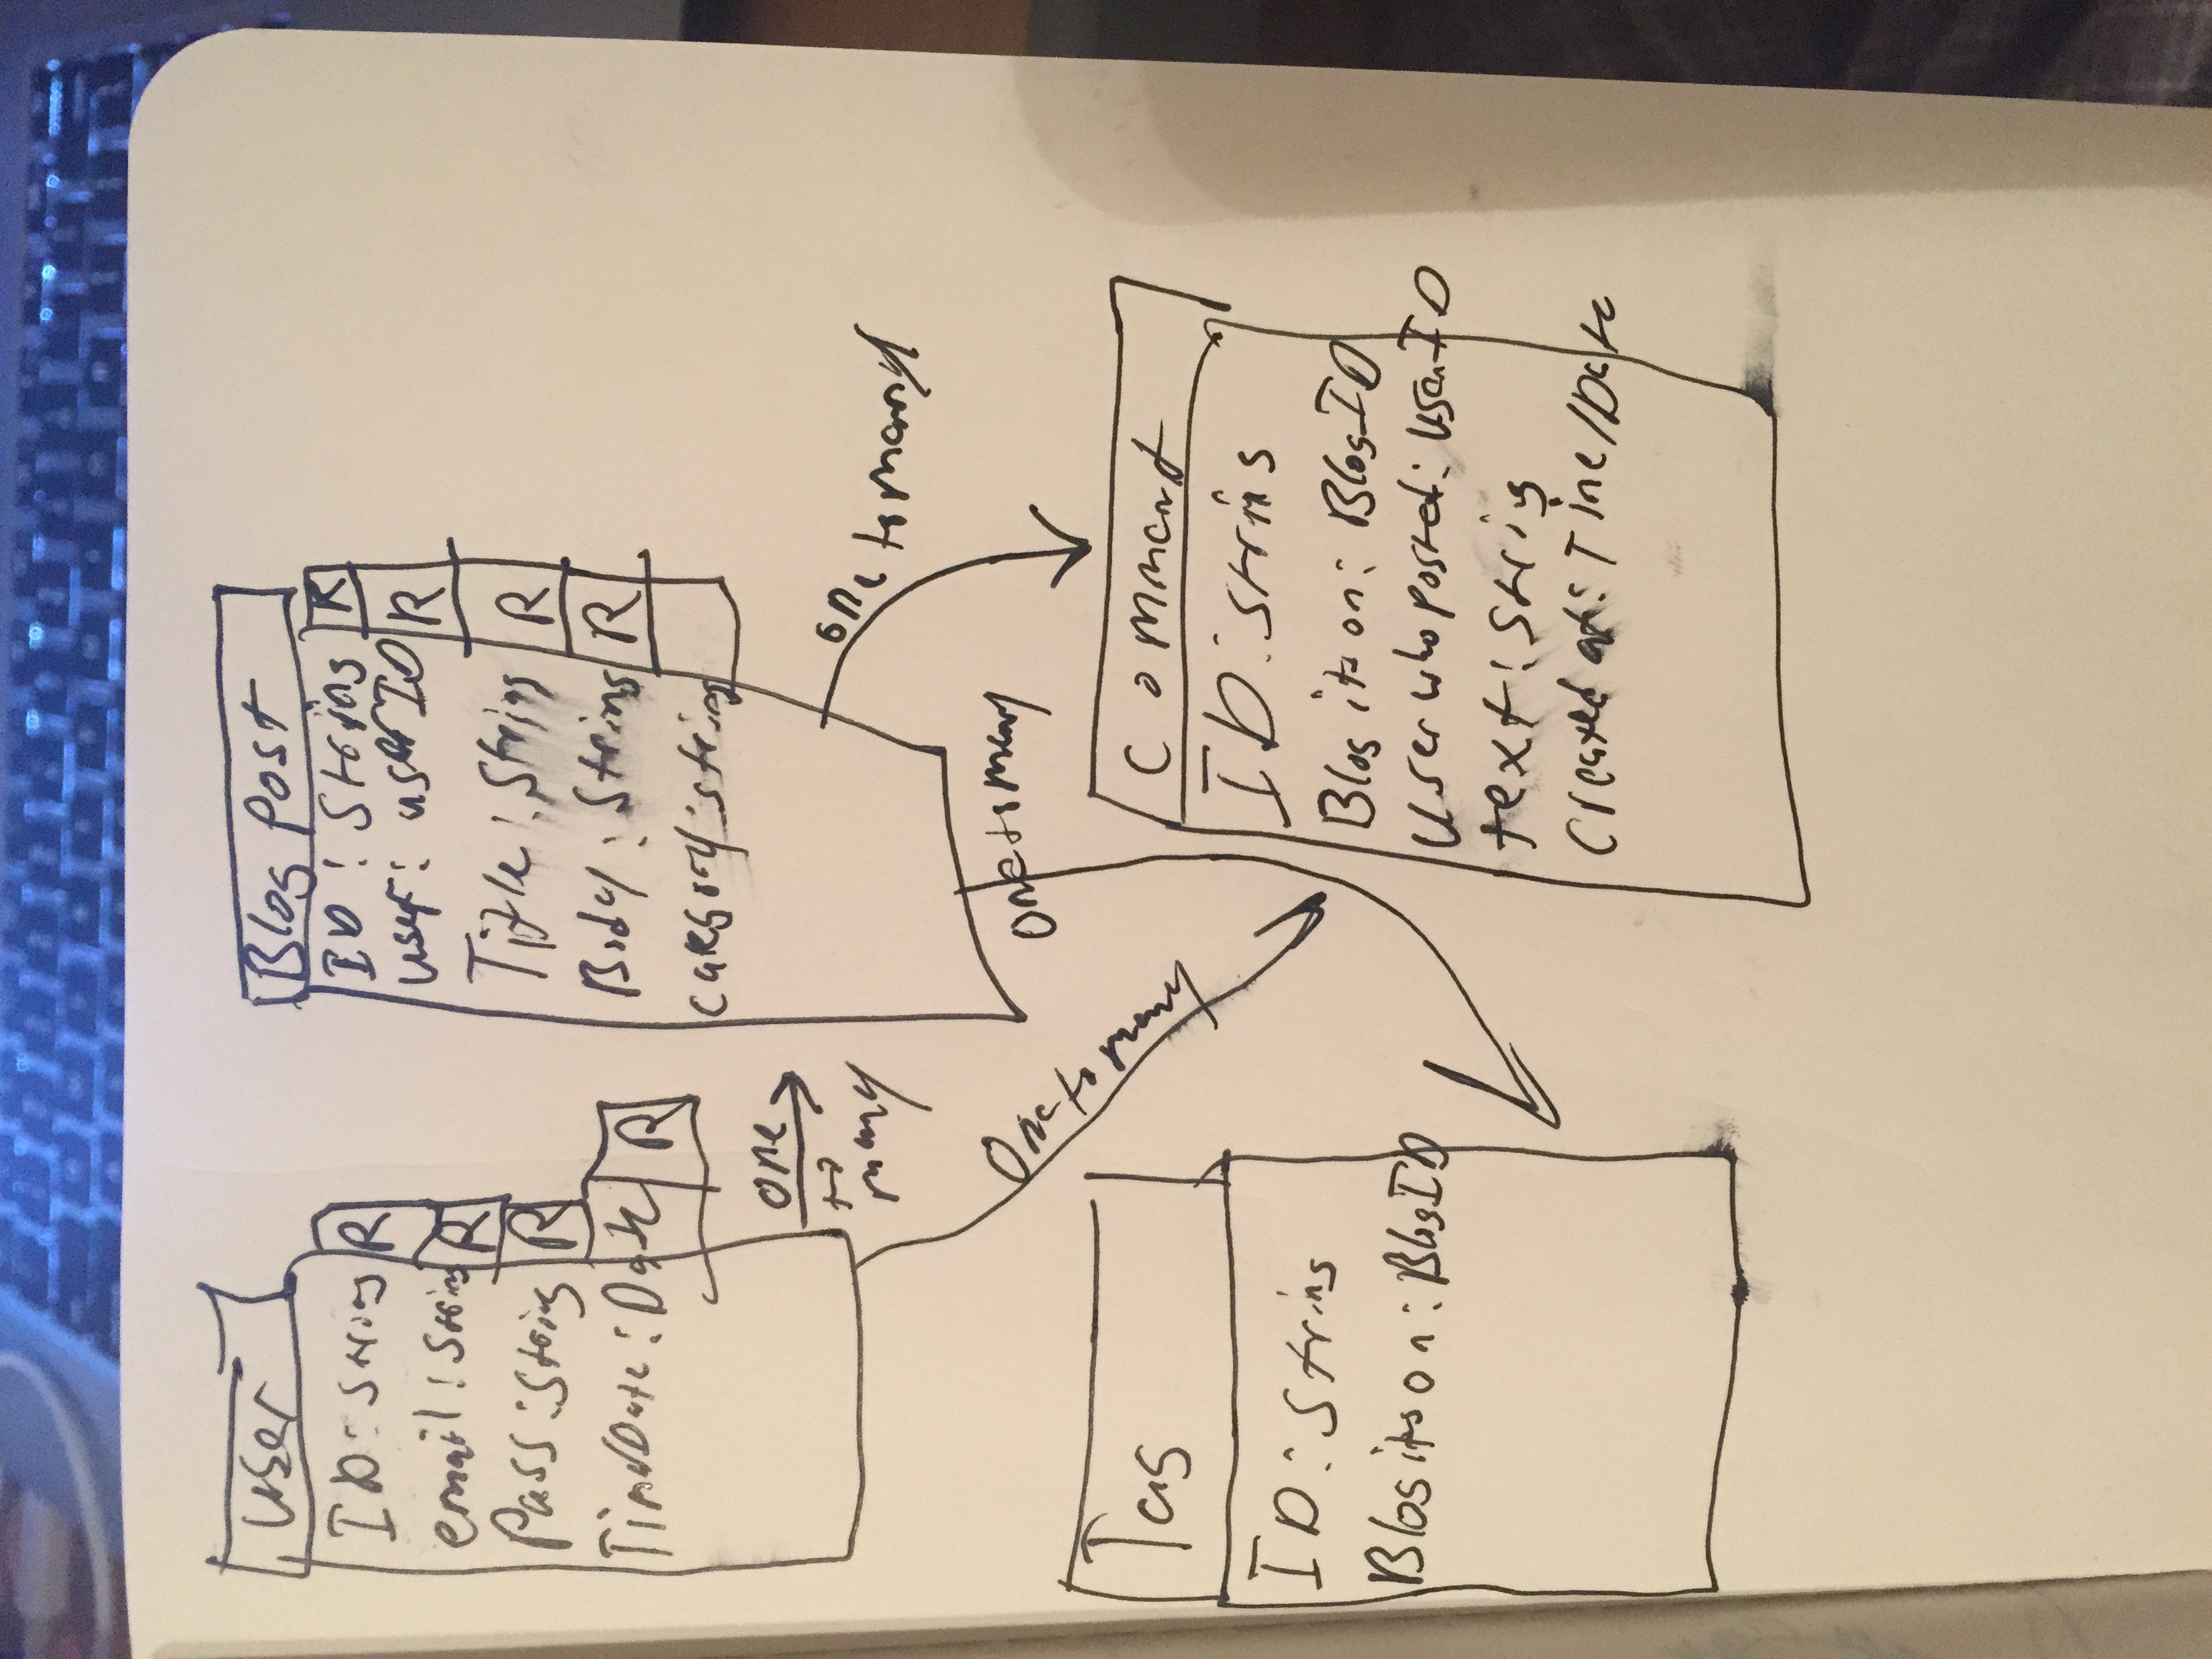 User
ID: String R
email: String R
Pass: String R
Time/Date: Date R
one
to
many
Blog post
ID: String R
user: userID R
Title: String R
Body: String R
category: string
one to many
One to many
One to many
Tag
ID: String
Blog its on: BlogID
Comment
ID: String
Blog its on: BlogID
User who posted: UserID
text: String
Created at: Time/Date